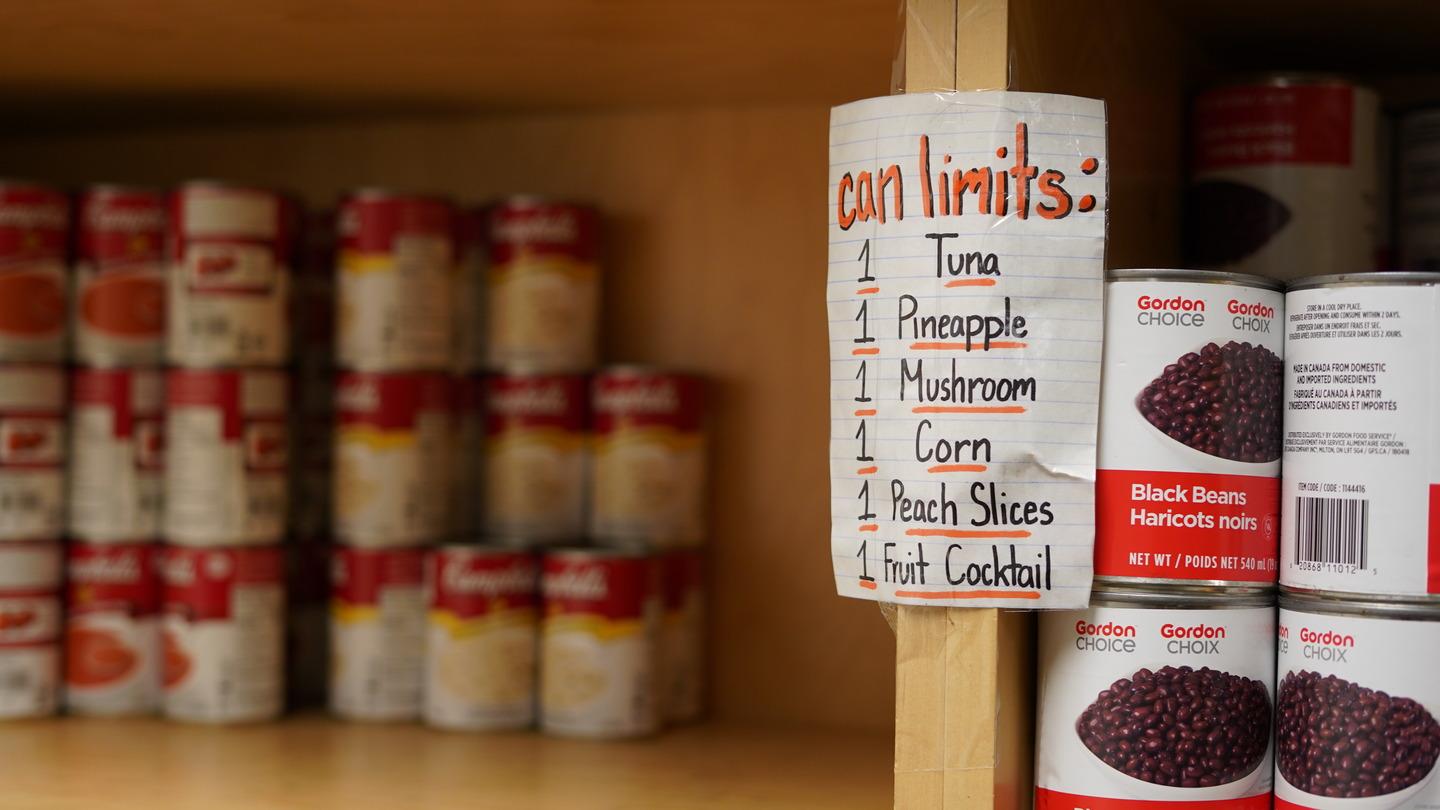 can limits:
1 Tuna
1 Pineapple
1 Mushroom
1 Corn
1 Peach Slices
1 Fruit Cocktail
Gordon Gordon
CHOICE CHOIX
Black Beans
Haricots noirs
NET WT / POIDS NET 540 mL
STORE IN A COOL DRY PLACE.
REFRIGERATE AFTER OPENING AND CONSUME WITHIN 2 DAYS.
ENTREPOSER DANS UN ENDROIT FRAIS ET SEC.
RÉFRIGÉRER APRÈS OUVERTURE ET UTILISER DANS LES 2 JOURS.
MADE IN CANADA FROM DOMESTIC
AND IMPORTED INGREDIENTS
FABRIQUÉ AU CANADA À PARTIR
D'INGRÉDIENTS CANADIENS ET IMPORTÉS
DISTRIBUTED EXCLUSIVELY BY GORDON FOOD SERVICE® /
EXCLUSIVEMENT PAR SERVICE ALIMENTAIRE GORDON
CANADA COMPANY INC., MILTON, ON L9T 5G4 / GFS.CA / 180418
ITEM CODE / CODE : 1144416
20868 11012 5
Gordon Gordon
CHOICE CHOIX
Gordon
CHOIX
Campbell's
Campbell's
Campbell's